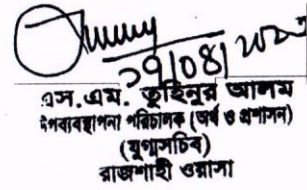 ২৭/০৪/২০২০
এস.এম. তুহিনুর আলম
উপব্যবস্থাপনা পরিচালক (অর্থ ও প্রশাসন)
(যুগ্মসচিব)
রাজশাহী ওয়াসা